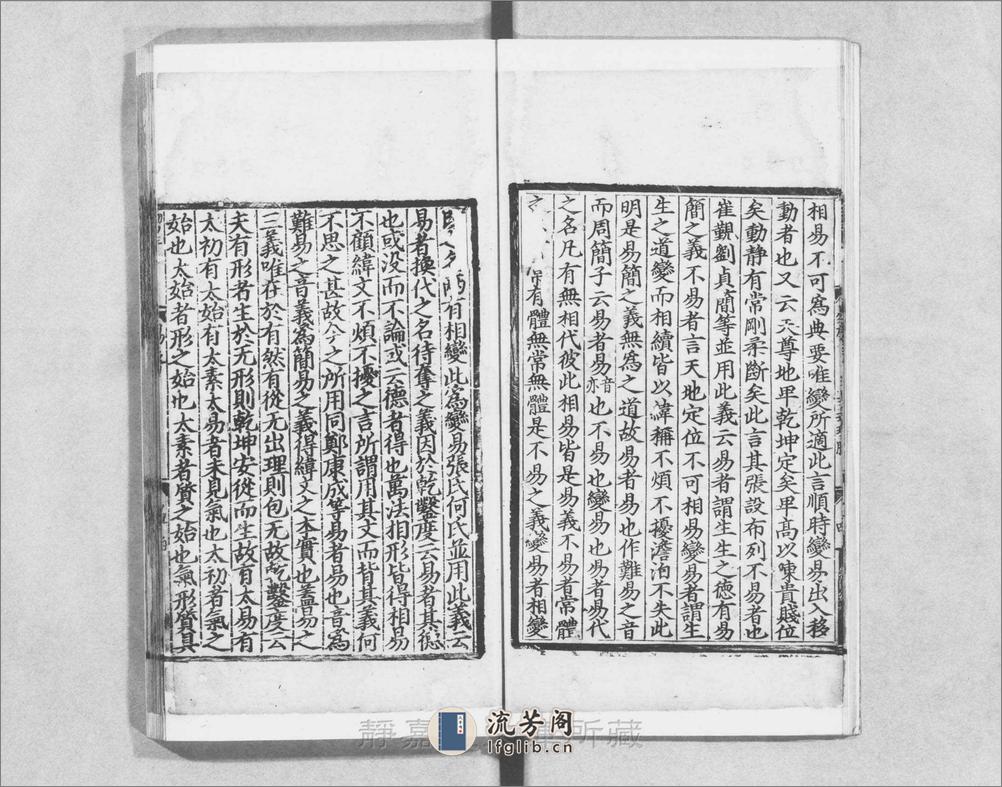 相易不可爲典要唯變所適此言順時變易出入移
動者也又云天尊地卑乾坤定矣卑髙以陳貴賤位
矣動靜有常剛柔斷矣此言其張設布列不易者也
崔覲劉貞簡等並用此義云易者謂生生之德有易
簡之義不易者言天地定位不可相易變易者謂生
生之道變而相續皆以緯稱不煩不擾澹泊不失此
明是易簡之義無爲之道故易者易也作難易之音
而周簡子云易者易音亦也不易也變易也易者易代
之名凡有無相代彼此相易皆是易義不易者常體
之有體無常無體是不易之義變易者相變
有相變此爲變易張氏何氏並用此義云
易者換代之名待奪之義因於乾鑿度云易者其德
也或没而不論或云德者得也萬法相形皆得相易
不顧緯文不煩不擾之言所謂用其文而背其義何
不思之甚故今之所用同鄭康成等易者易也音爲
難易之音義爲簡易之義得緯文之本實也蓋易之
三義唯在於有然有從无出理則包无故乾鑿度云
夫有形者生於无形則乾坤安從而生故有太易有
太初有太始有太素太易者未見氣也太初者氣之
始也太始者形之始也太素者質之始也氣形質具
靜嘉所藏
流芳阁
lfglib.cn